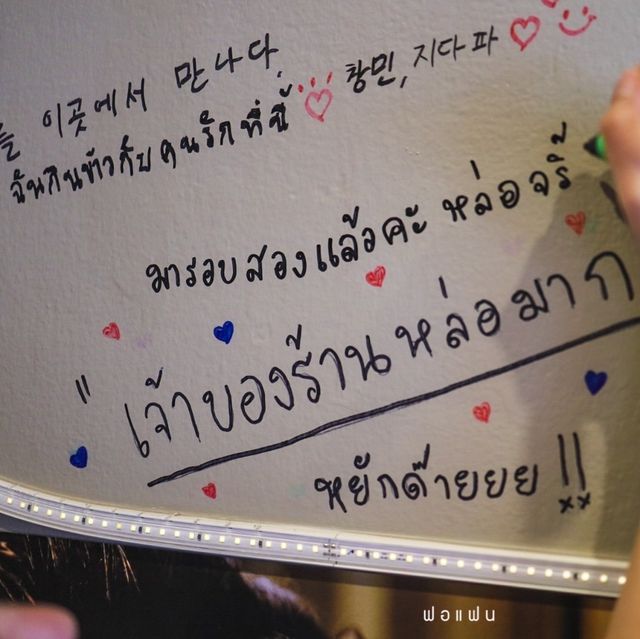 를 이곳에서 만나다,
창민, 지다파
ฉันกินข้าวกับคนรักที่นี่
มารอบสองแล้วคะ หล่อจริ้
"เจ้าของร้านหล่อมาก
หยักด๊ายยย!!
ฟอแฟน